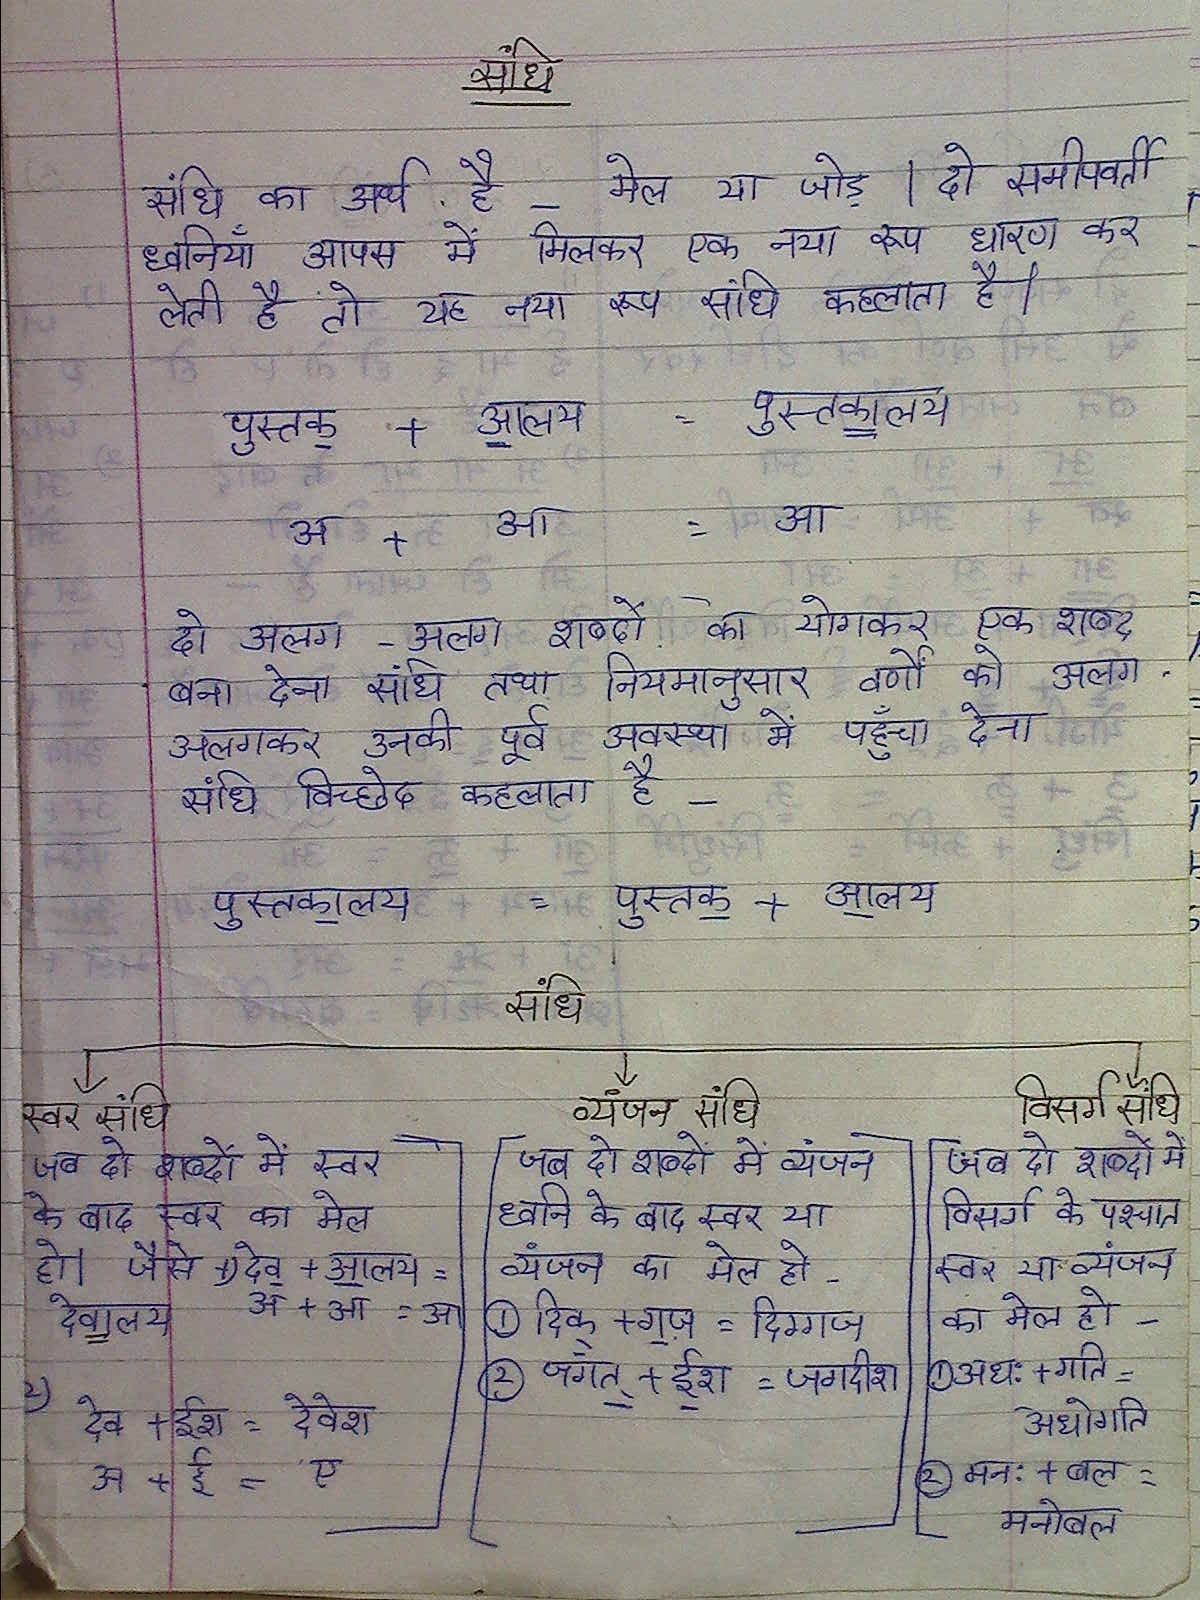 संधि
संधि का अर्थ है - मेल या जोड़ | दो समीपवर्ती
ध्वनियाँ आपस में मिलकर एक नया रूप धारण कर
लेती है तो यह नया रूप संधि कहलाता है |
पुस्तक + आलय = पुस्तकालय
अ + आ = आ
दो अलग - अलग शब्दों का योगकर एक शब्द
बना देना संधि तथा नियमानुसार वर्णों को अलग -
अलगकर उनकी पूर्व अवस्था में पहुँचा देना
संधि विच्छेद कहलाता है -
पुस्तकालय = पुस्तक + आलय
संधि
स्वर संधि
जब दो शब्दों में स्वर
के बाद स्वर का मेल
हो| जैसे 1) देव + आलय =
देवालय अ + आ = आ
2)
देव + ईश = देवेश
अ + ई = ए
व्यंजन संधि
जब दो शब्दों में व्यंजन
ध्वनि के बाद स्वर या
व्यंजन का मेल हो -
① दिक् + गज = दिग्गज
② जगत् + ईश = जगदीश
विसर्ग संधि
जब दो शब्दों में
विसर्ग के पश्चात
स्वर या व्यंजन
का मेल हो -
① अधः + गति =
अधोगति
② मनः + बल =
मनोबल